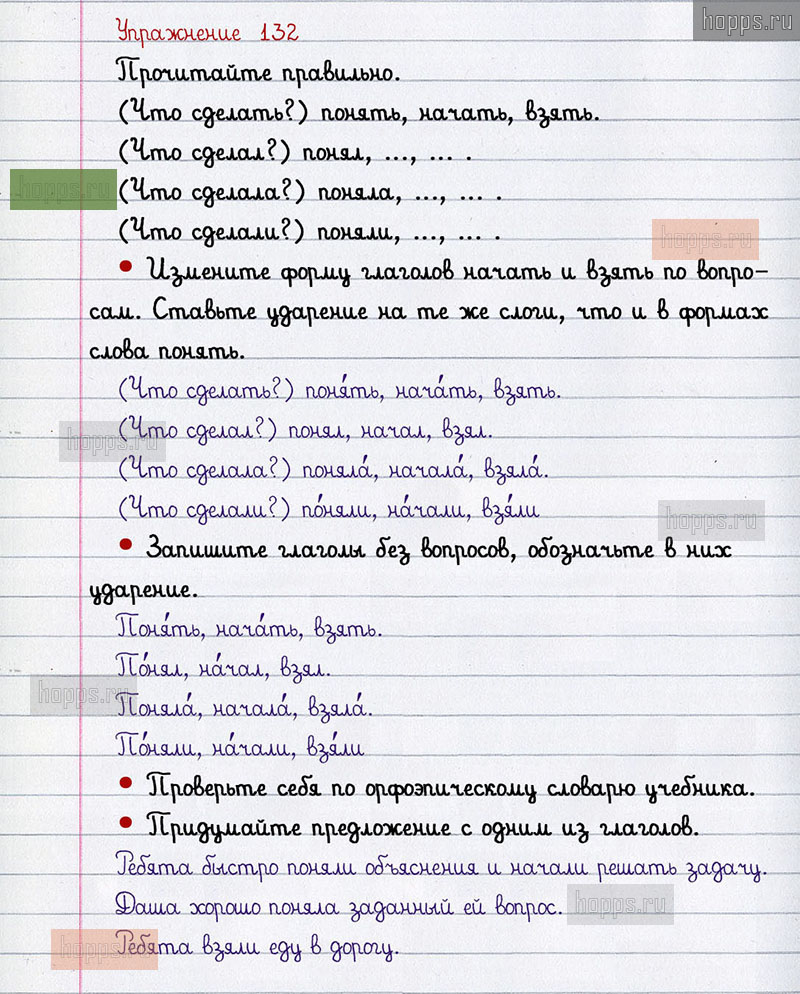 hopps.ru
Упражнение 132
Прочитайте правильно.
(Что сделать?) понять, начать, взять.
(Что сделал?) понял, ..., ... .
hopps.ru
(Что сделала?) поняла, ..., ... .
(Что сделали?) поняли, ..., ... .
hopps.ru
• Измените форму глаголов начать и взять по вопро-
сам. Ставьте ударение на те же слоги, что и в формах
слова понять.
(Что сделать?) поня́ть, нача́ть, взять.
(Что сделал?) понял, начал, взял.
hopps.ru
(Что сделала?) поняла́, начала́, взяла́.
(Что сделали?) по́няли, на́чали, взя́ли
hopps.ru
• Запишите глаголы без вопросов, обозначьте в них
ударение.
Поня́ть, нача́ть, взять.
По́нял, на́чал, взял.
hopps.ru
Поняла́, начала́, взяла́.
По́няли, на́чали, взя́ли
• Проверьте себя по орфоэпическому словарю учебника.
• Придумайте предложение с одним из глаголов.
Ребята быстро поняли объяснения и начали решать задачу.
Даша хорошо поняла заданный ей вопрос.
hopps.ru
Ребята взяли еду в дорогу.
hopps.ru